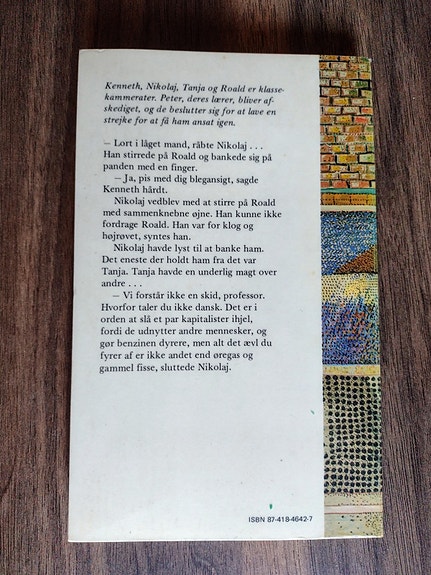 Kenneth, Nikolaj, Tanja og Roald er klasse-
kammerater. Peter, deres lærer, bliver af-
skediget, og de beslutter sig for at lave en
strejke for at få ham ansat igen.
– Lort i låget mand, råbte Nikolaj . . .
Han stirrede på Roald og bankede sig på
panden med en finger.
– Ja, pis med dig blegansigt, sagde
Kenneth hårdt.
Nikolaj vedblev med at stirre på Roald
med sammenknebne øjne. Han kunne ikke
fordrage Roald. Han var for klog og
højrøvet, syntes han.
Nikolaj havde lyst til at banke ham.
Det eneste der holdt ham fra det var
Tanja. Tanja havde en underlig magt over
andre . . .
– Vi forstår ikke en skid, professor.
Hvorfor taler du ikke dansk. Det er i
orden at slå et par kapitalister ihjel,
fordi de udnytter andre mennesker, og
gør benzinen dyrere, men alt det ævl du
fyrer af er ikke andet end øregas og
gammel fisse, sluttede Nikolaj.
ISBN 87-418-4642-7